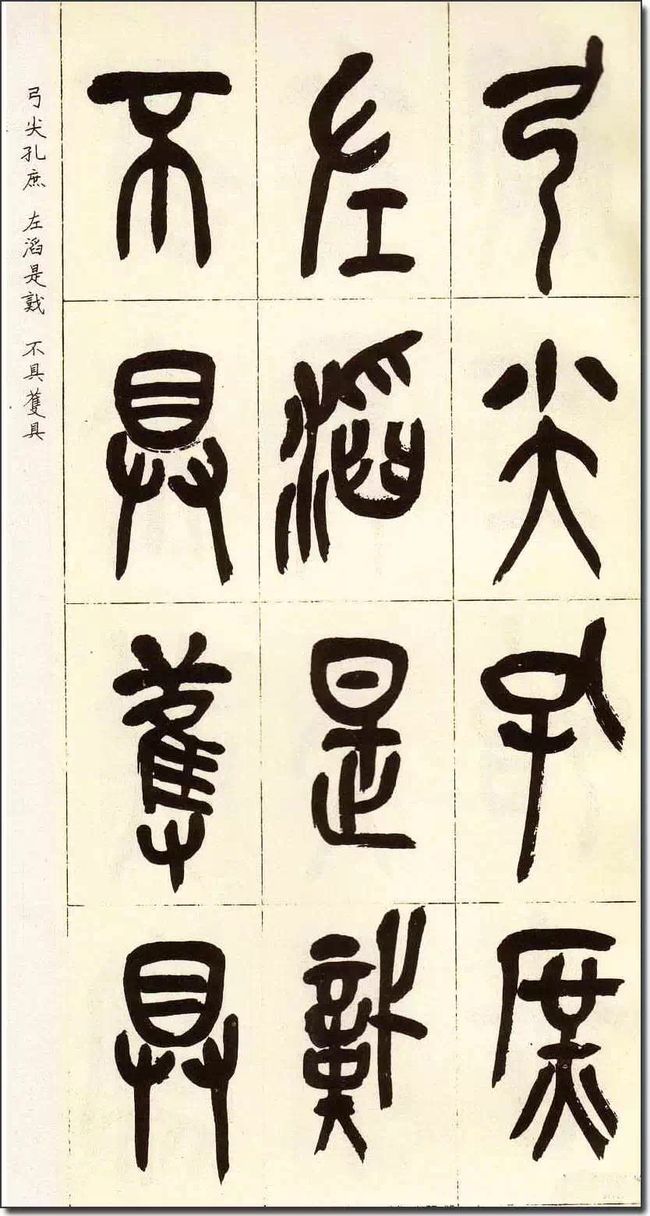 弓尖孔庶
左滔是
不具蒦具
弓尖孔庶 左滔是 不具蒦具